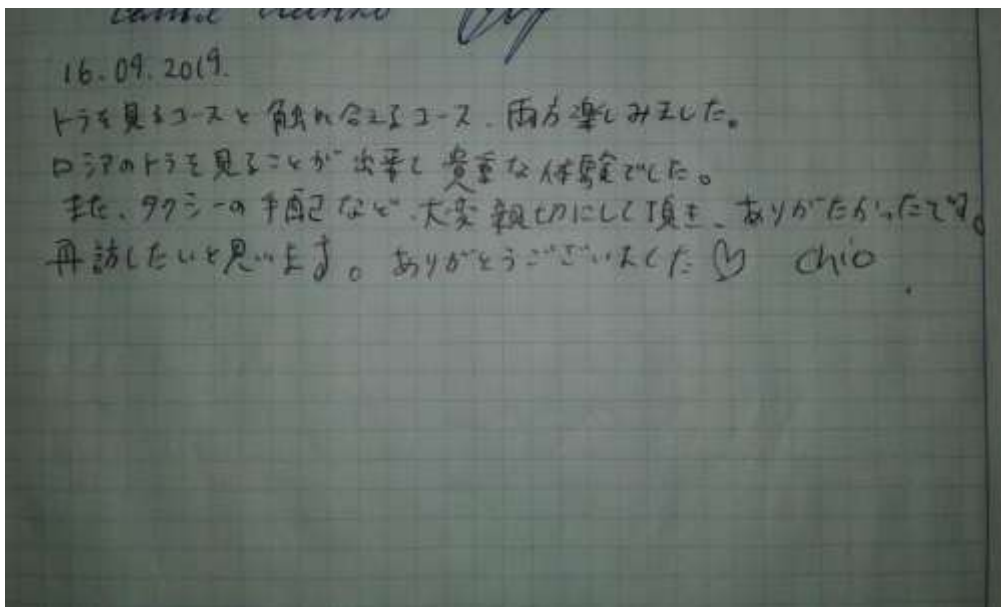 16.09.2019.
トラを見るコースと触れ合えるコース、両方楽しみました。
ロシアのトラを見ることが出来て貴重な体験でした。
また、タクシーの手配など、大変親切にして頂き、ありがたかったです。
再訪したいと思います。ありがとうございました♡ Chio